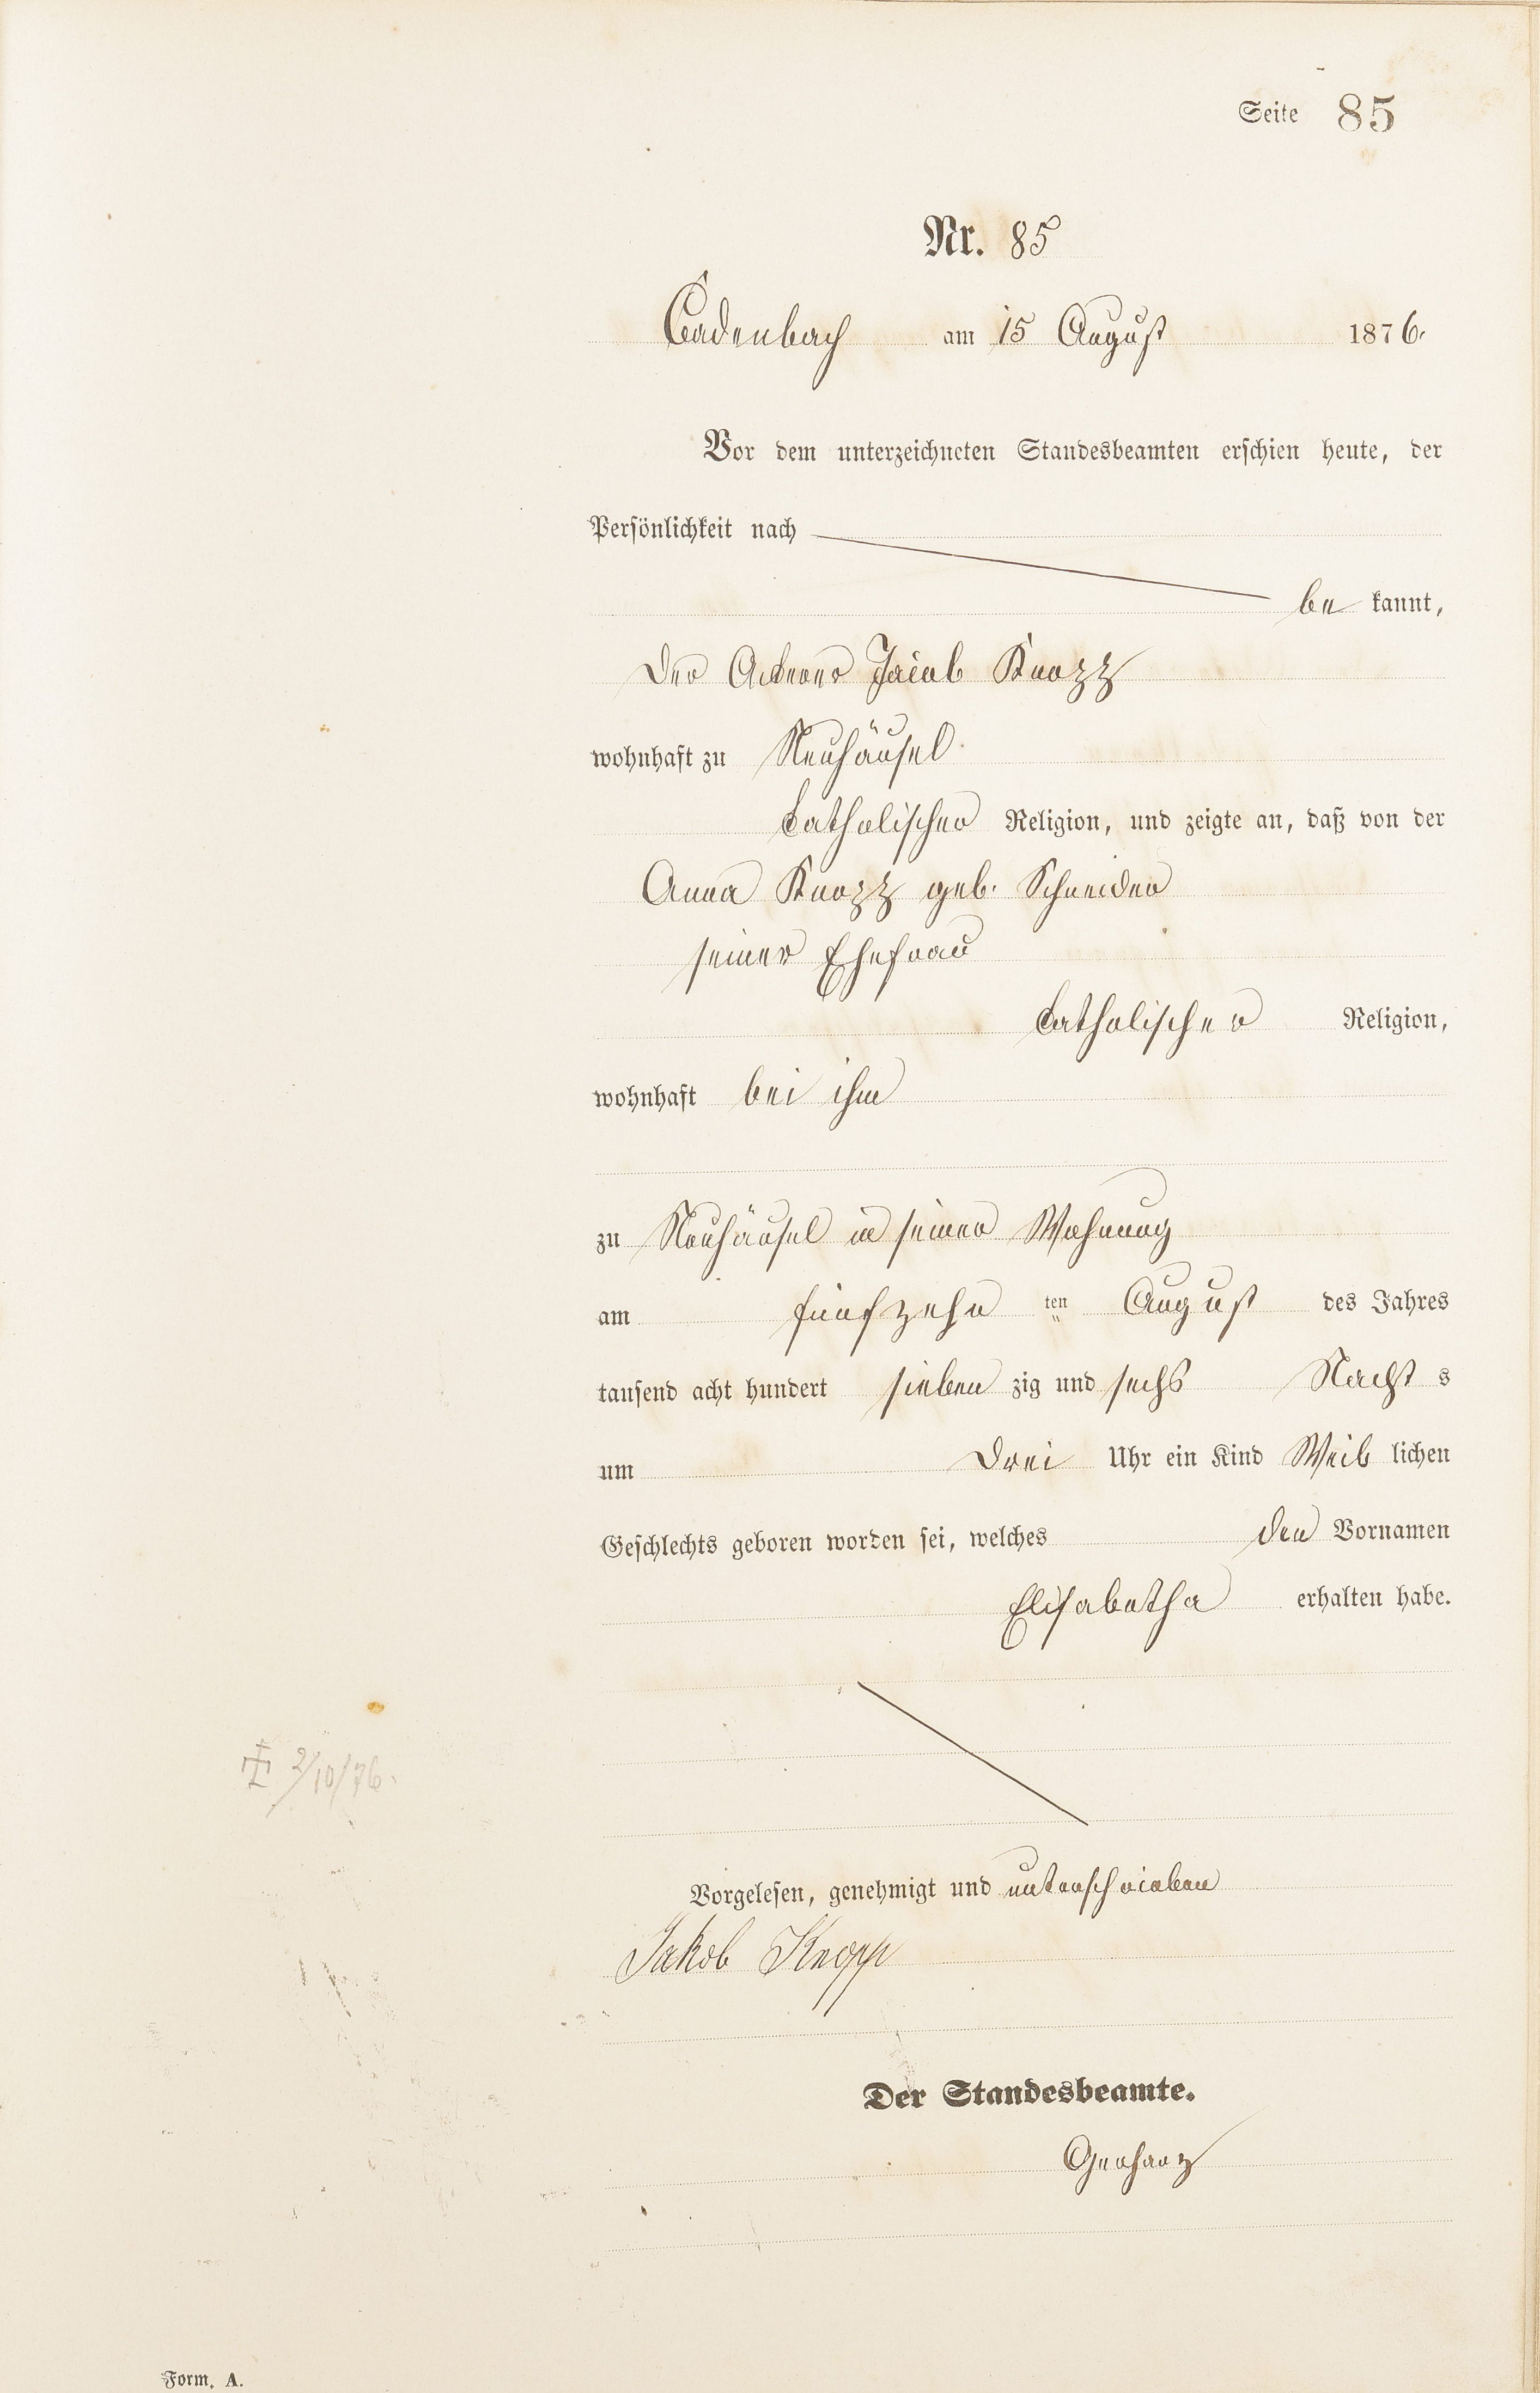 Seite 85
Nr. 85
Cadenbach am 15 August 1876.
Vor dem unterzeichneten Standesbeamten erschien heute, der
Persönlichkeit nach
be kannt,
der Ackerer Jacob Knopp
wohnhaft zu Neuhäusel
katholischer Religion, und zeigte an, daß von der
Anna Knopp geb. Schneider
seiner Ehefrau
katholischer Religion,
wohnhaft bei ihm
zu Neuhäusel in seiner Wohnung
am fünfzehn ten August des Jahres
tausend acht hundert sieben zig und sechs Nacht s
um drei Uhr ein Kind Weib lichen
Geschlechts geboren worden sei, welches den Vornamen
Elisabetha erhalten habe.
† 2/10/76.
Vorgelesen, genehmigt und unterschrieben
Jakob Knopp
Der Standesbeamte.
Gerharz
Form. A.